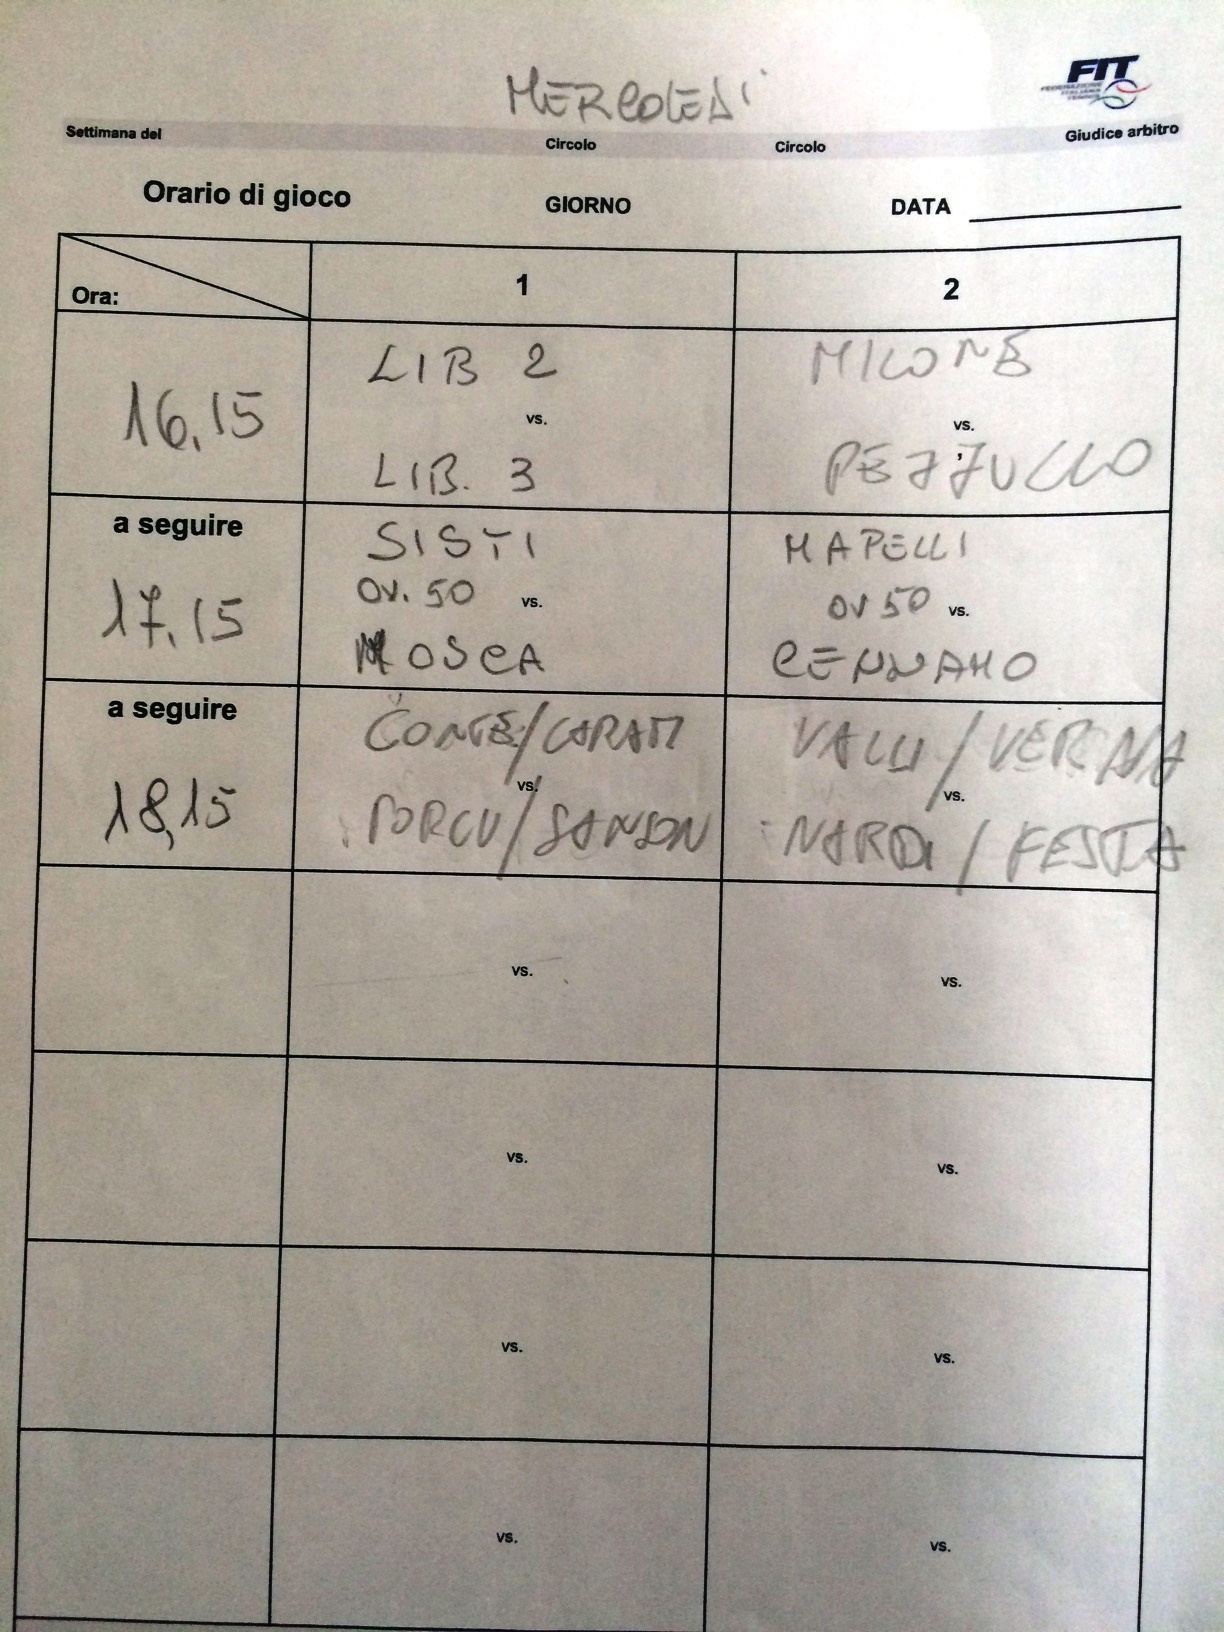 MERCOLEDI'
FIT
FEDERAZIONE
ITALIANA
TENNIS
Settimana del Circolo Circolo Giudice arbitro
Orario di gioco GIORNO DATA
Ora: 1 2
LIB 2 MILONE
16,15 vs. vs.
LIB. 3 PEZZULLO
a seguire SISTI MAPELLI
17,15 OV. 50 vs. OV 50 vs.
MOSCA CENNAMO
a seguire CONTE/CARATI VALLI/VERNA
18,15 vs. vs.
PORCU/SANSON NARDI/FESTA
vs. vs.
vs. vs.
vs. vs.
vs. vs.